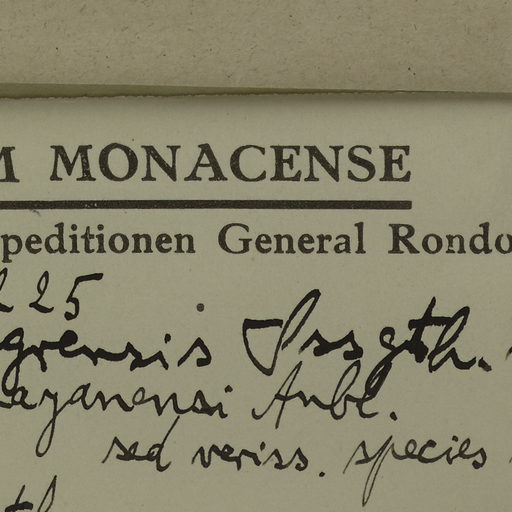 M MONACENSE
peditionen General Rondo
225
grensis Ssgth.
ayanensi Aubl.
sed veriss. species